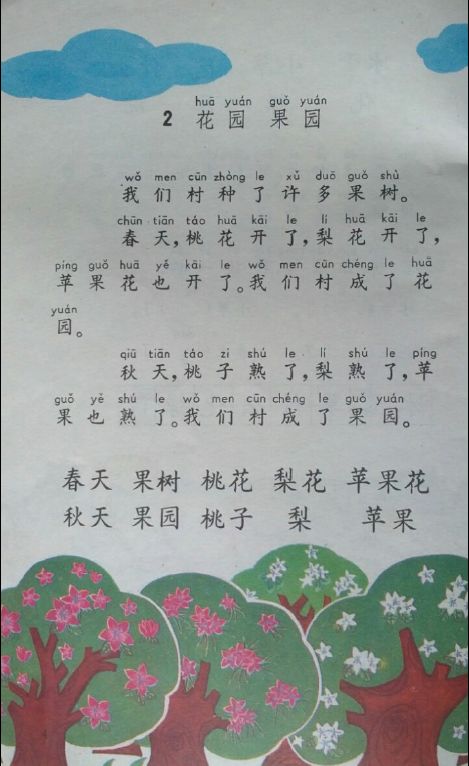 huā yuán guǒ yuán
2 花园 果园
wǒ men cūn zhòng le xǔ duō guǒ shù
我们村种了许多果树。
chūn tiān táo huā kāi le lí huā kāi le
春天，桃花开了，梨花开了，
píng guǒ huā yě kāi le wǒ men cūn chéng le huā
苹果花也开了。我们村成了花
yuán
园。
qiū tiān táo zi shú le lí shú le píng
秋天，桃子熟了，梨熟了，苹
guǒ yě shú le wǒ men cūn chéng le guǒ yuán
果也熟了。我们村成了果园。
春天 果树 桃花 梨花 苹果花
秋天 果园 桃子 梨 苹果